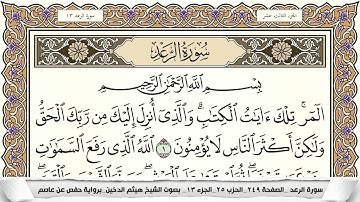 الجزء الثالث عشر
سورة الرعد ١٣
سُورَةُ الرَّعْدِ
بِسْمِ اللَّهِ الرَّحْمَٰنِ الرَّحِيمِ
الٓمٓرۚ تِلْكَ ءَايَٰتُ ٱلْكِتَٰبِۗ وَٱلَّذِىٓ أُنزِلَ إِلَيْكَ مِن رَّبِّكَ ٱلْحَقُّ
وَلَٰكِنَّ أَكْثَرَ ٱلنَّاسِ لَا يُؤْمِنُونَ ١ ٱللَّهُ ٱلَّذِى رَفَعَ ٱلسَّمَٰوَٰتِ
سورة الرعد _ الصفحة ٢٤٩ _ الحزب ٢٥ _ الجزء ١٣ _ بصوت الشيخ هيثم الدخين برواية حفص عن عاصم